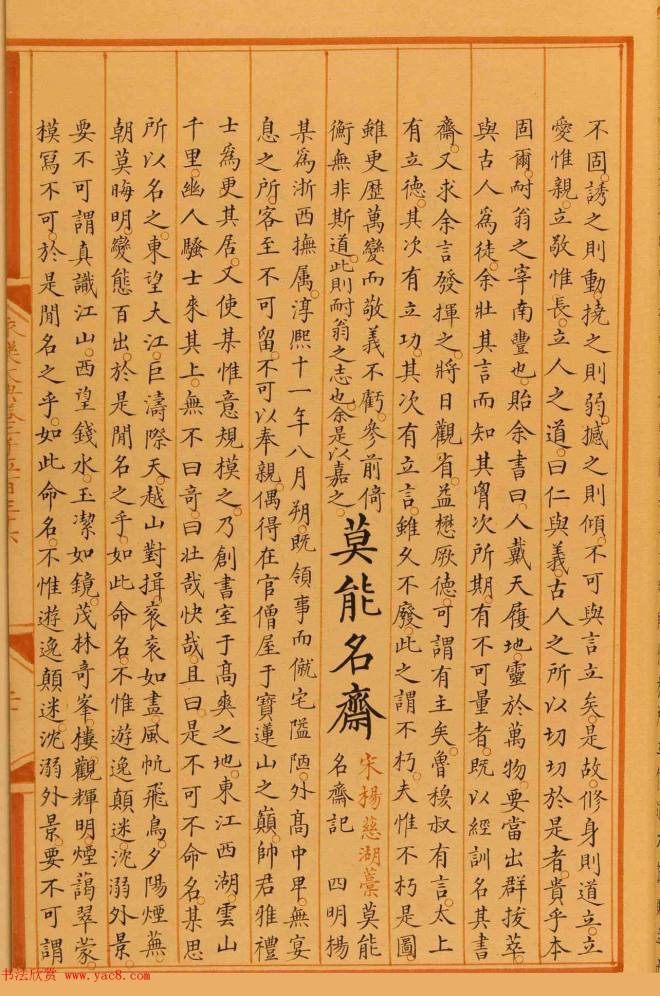 不固。誘之則動。撓之則弱。撼之則傾。不可與言立矣。是故。修身則道立。立
愛惟親。立敬惟長。立人之道。曰仁與義。古人之所以切切於是者。貴乎本
固爾。耐翁之宰南豐也。貽余書曰。人戴天履地。靈於萬物。要當出群拔萃。
與古人為徒。余壯其言而知其胷次所期。有不可量者。既以經訓名其書
齋。又求余言發揮之。將日觀省。益懋厥德。可謂有主矣。魯穆叔有言。太上
有立德。其次有立功。其次有立言。雖久不廢。此之謂不朽。夫惟不朽是圖
雖更歷萬變而敬義不虧。參前倚
衡無非斯道。此則耐翁之志也。余是以嘉之。
莫能名齋
宋楊慈湖藁
莫能
名齋記 四明楊
某為浙西撫属。淳熙十一年八月朔。既領事而僦宅隘陋。外高中卑。無宴
息之所。客至不可留。不可以奉親。偶得在官僧屋于寶蓮山之巔。帥君雅禮
士為更其居。又使某惟意規模之。乃創書室于高爽之地。東江西湖。雲山
千里。幽人騷士來其上。無不曰奇。曰壯哉快哉。且曰是不可不命名。某思
所以名之。東望大江。巨濤際天。越山對揖。衮衮如畫。風帆飛鳥。夕陽煙蕪。
朝莫晦明。變態百出。於是閒名之乎。如此命名。不惟遊逸顛迷。沈溺外景。
要不可謂真識江山。西望錢水。玉潔如鏡。茂林奇峯。樓觀輝明。煙藹翠蒙。
模寫不可。於是閒名之乎。如此命名。不惟遊逸顛迷。沈溺外景。要不可謂
书法欣赏 www.yac8.com